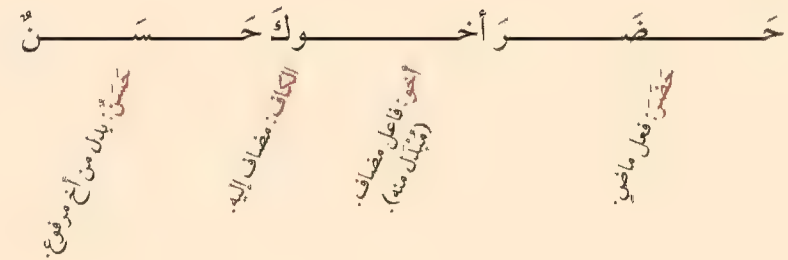 حَـــضَـــرَ أخـــوكَ حَـــسَـــنٌ
حَضَرَ: فعل ماضٍ.
أخو: فاعل مضاف.
(مُبْدَل منه).
الكاف: مضاف إليه.
حَسَنٌ: بَدَل من أخ مرفوع.